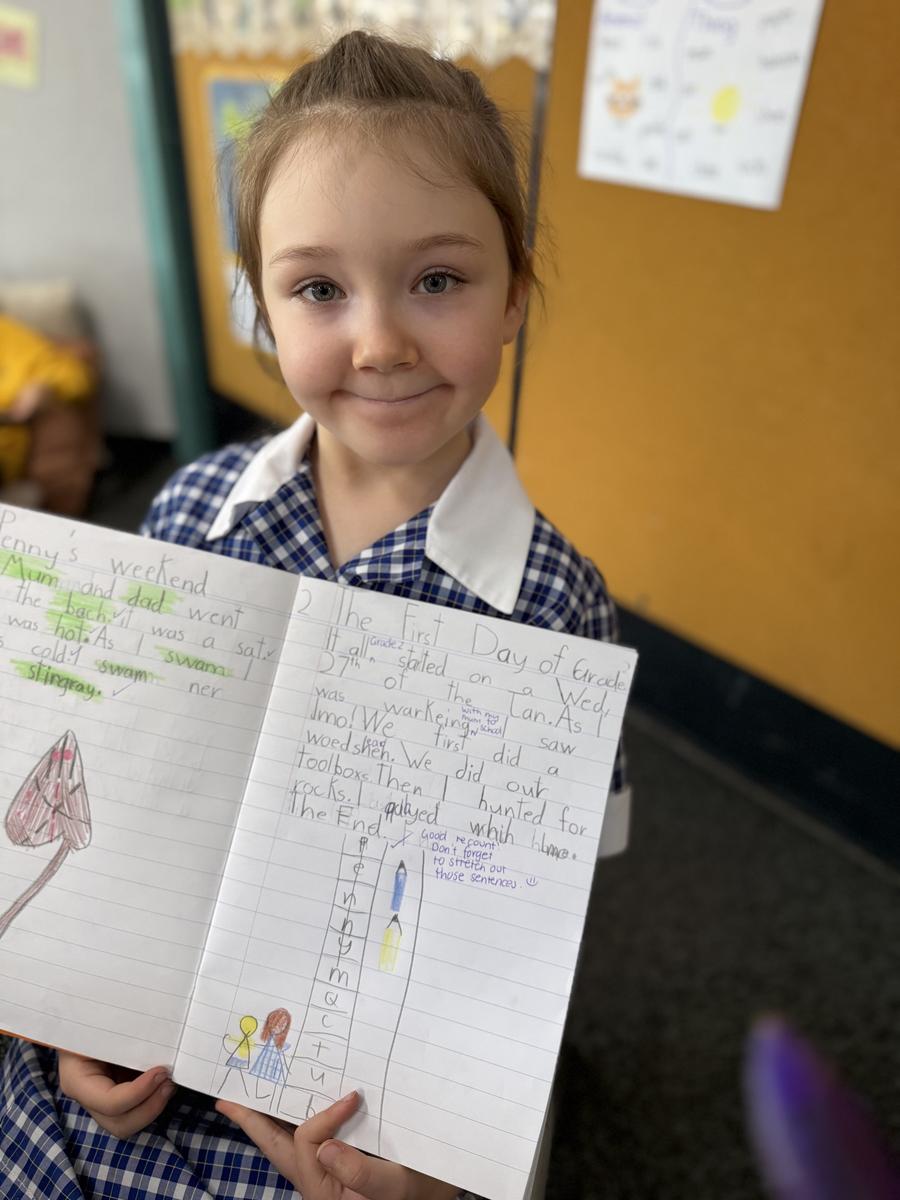 Penny's weekend
Mum and dad went
the bach. It was a sat.
was hot. As I swam I
cold. I swam ner
stingray.
2 The First Day of Grade
It all started on a Wed,
Grade 2
27th of the Jan. As I
was warkeing saw
with my
mum to
school
Imo! We first did a
woedsheh. We did out
read
toolboxs. Then I hunted for
rocks. I played whih
The End.
Good recount
Don't forget
to stretch out
those sentences.
p
e
n
n
y
m
a
c
t
u
b